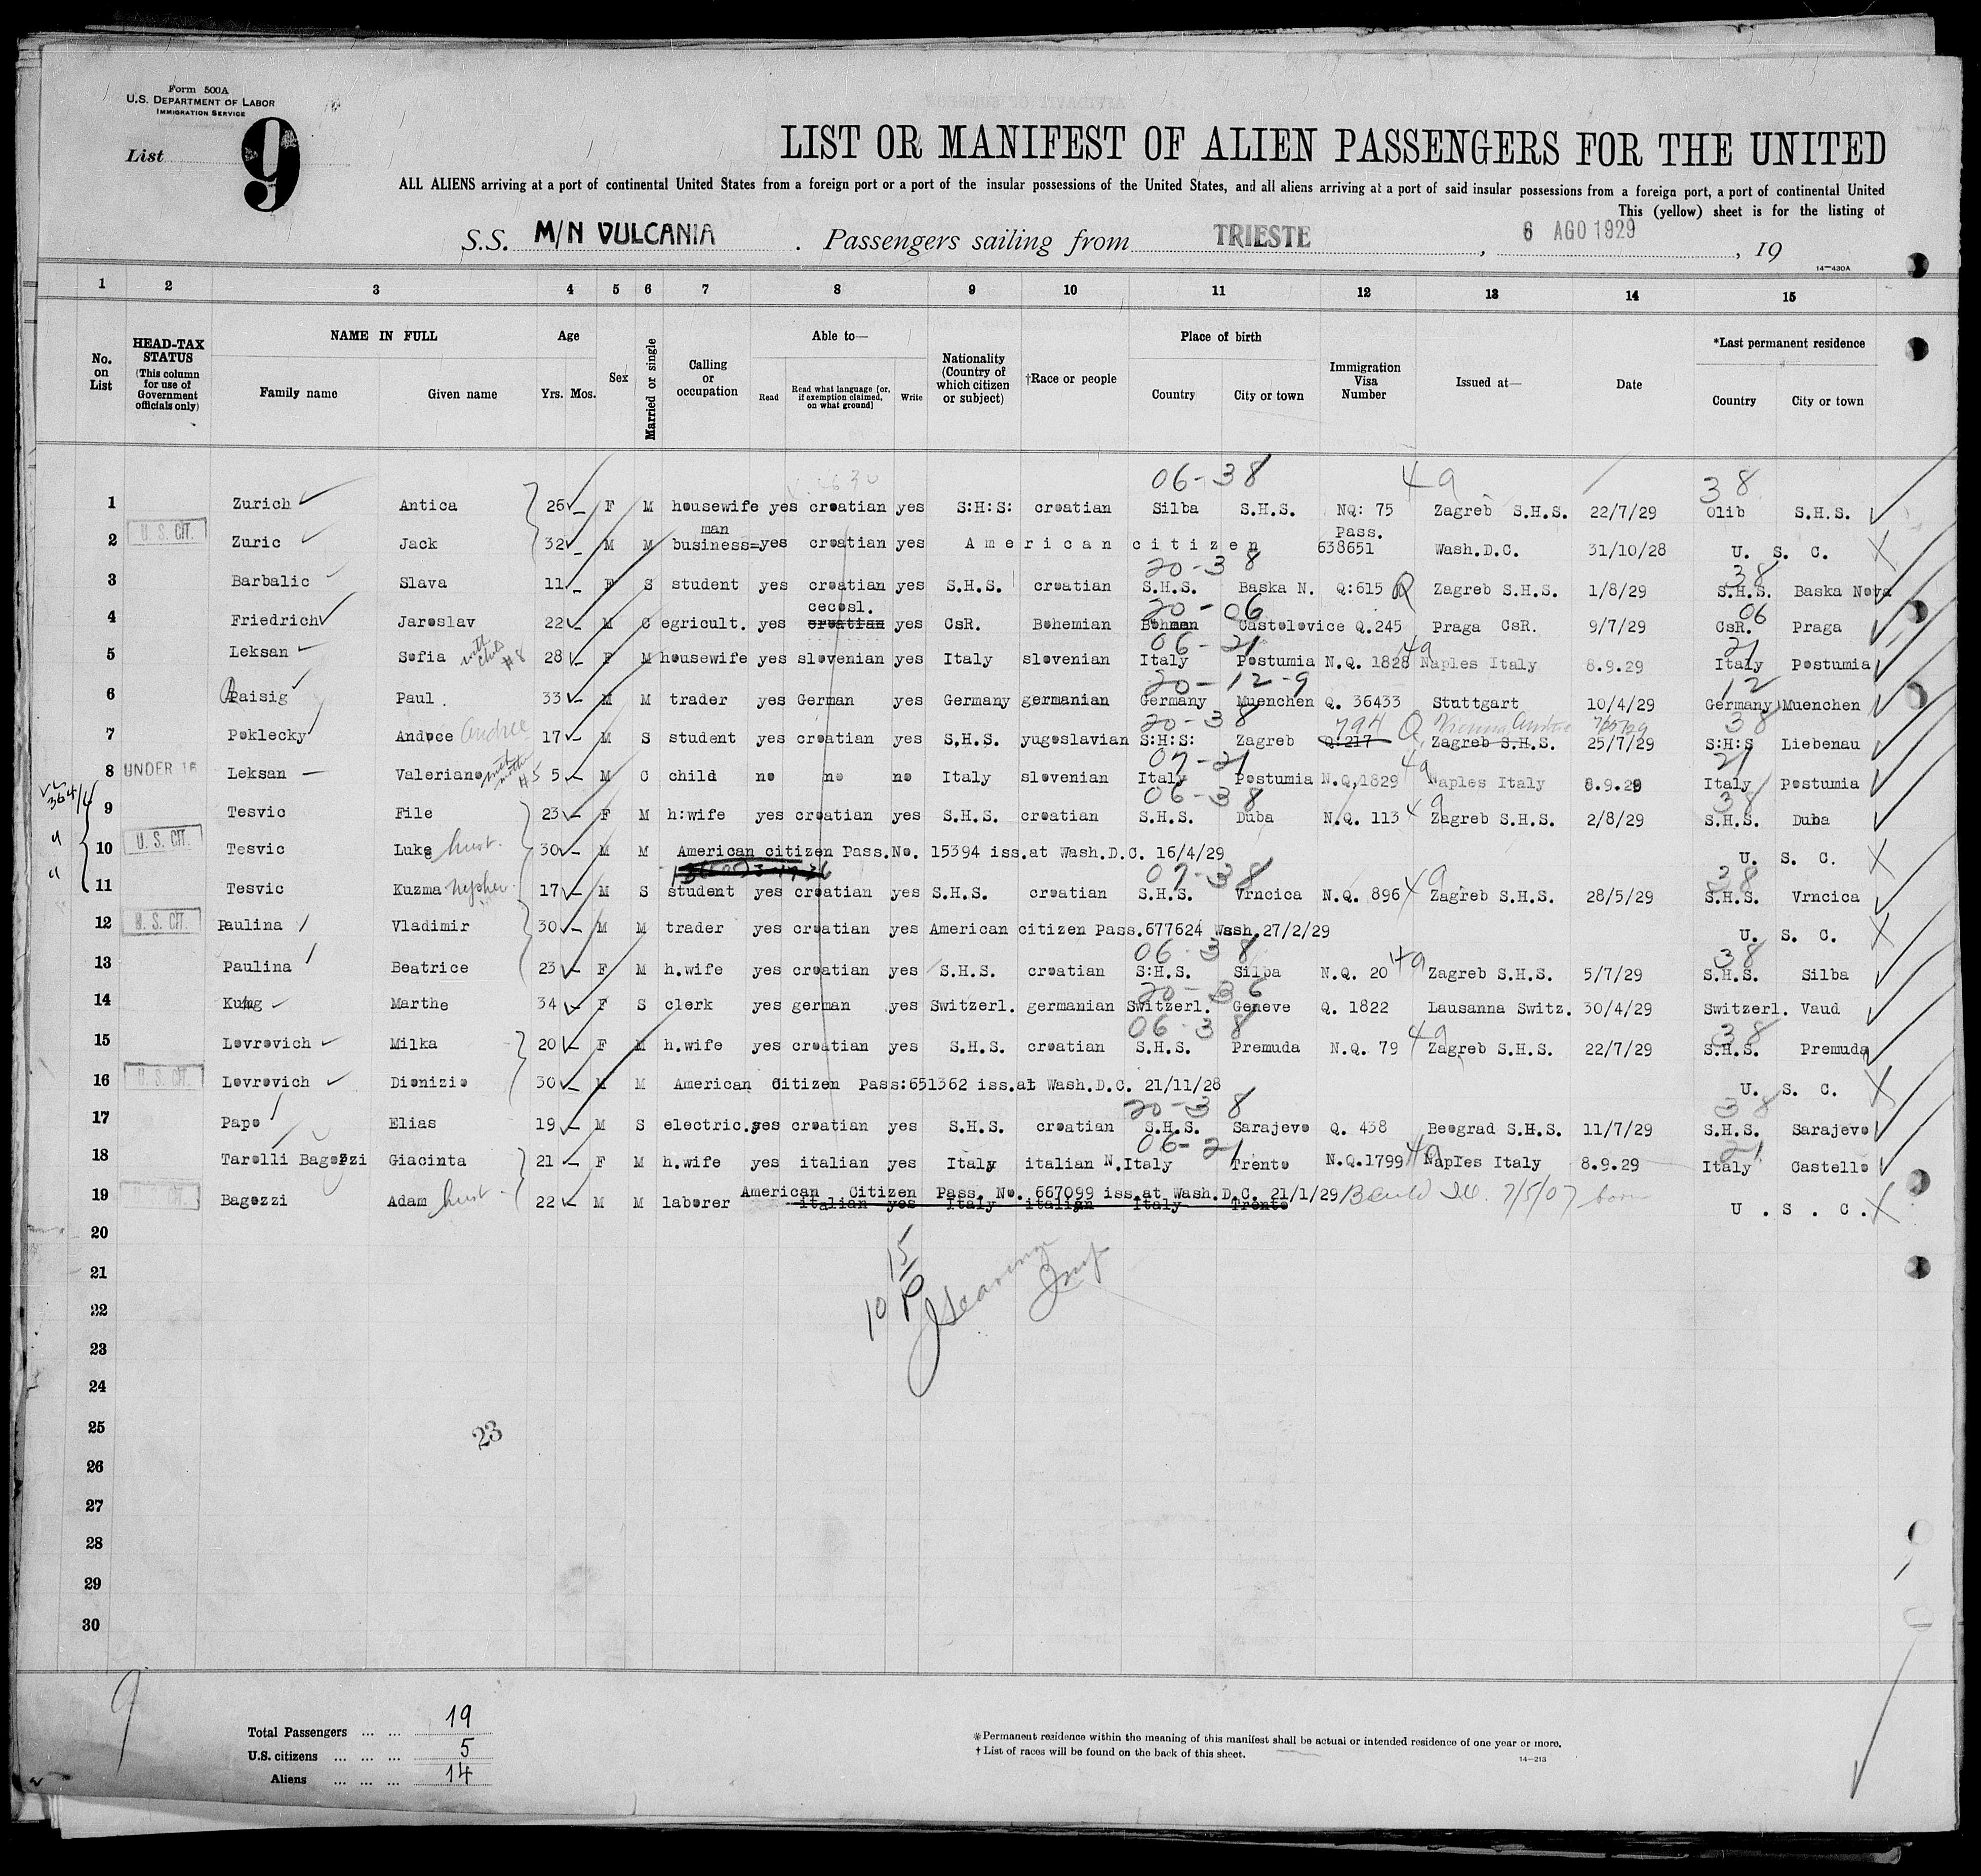 Form 500A
U.S. DEPARTMENT OF LABOR
IMMIGRATION SERVICE
List 9
LIST OR MANIFEST OF ALIEN PASSENGERS FOR THE UNITED
ALL ALIENS arriving at a port of continental United States from a foreign port or a port of the insular possessions of the United States, and all aliens arriving at a port of said insular possessions from a foreign port, a port of continental United
This (yellow) sheet is for the listing of
S.S. M/N VULCANIA . Passengers sailing from TRIESTE , 6 AGO 1929 , 19
14—430A
1 2 3 4 5 6 7 8 9 10 11 12 13 14 15
No. on List
HEAD-TAX STATUS (This column for use of Government officials only)
NAME IN FULL Family name Given name
Age Yrs. Mos.
Sex
Married or single
Calling or occupation
Able to— Read Read what language [or, if exemption claimed, on what ground] Write
Nationality (Country of which citizen or subject)
†Race or people
Place of birth Country City or town
Immigration Visa Number
Issued at—
Date
*Last permanent residence Country City or town
06-38 4a 38
1 Zurich Antica 26 F M housewife yes croatian yes S:H:S: croatian Silba S.H.S. NQ: 75 Zagreb S.H.S. 22/7/29 Olib S.H.S.
man Pass.
2 U. S. CIT. Zuric Jack 32 M M business= yes croatian yes American citizen 638651 Wash.D.C. 31/10/28 U. S. C.
20-38 38
3 Barbalic Slava 11 F S student yes croatian yes S.H.S. croatian S.H.S. Baska N. Q:615 Zagreb S.H.S. 1/8/29 S.H.S. Baska Nova
cecosl. 20-06 06
4 Friedrich Jaroslav 22 M C egricult. yes croatian yes CsR. Bohemian Bohmen Castolovice Q.245 Praga CsR. 9/7/29 CsR. Praga
06-21 4a 21
5 Leksan Sofia with child #8 28 F M housewife yes slovenian yes Italy slovenian Italy Postumia N.Q. 1828 Naples Italy 8.9.29 Italy Postumia
20-12-9 12
6 Raisig Paul . 33 M M trader yes German yes Germany germanian Germany Muenchen Q. 36433 Stuttgart 10/4/29 Germany Muenchen
20-38 794 Q Vienna, Austria 38
7 Peklecky Andoce Andree 17 M S student yes croatian yes S.H.S. yugoslavian S:H:S: Zagreb Q:217 Zagreb S.H.S. 25/7/29 S:H:S Liebenau
07-21 4a 21
8 UNDER 16 Leksan Valeriano with mother #5 5 M C child no no no Italy slovenian Italy Postumia N.Q.1829 Naples Italy 8.9.29 Italy Postumia
06-38 4a 38
9 Tesvic File 23 F M h:wife yes croatian yes S.H.S. croatian S.H.S. Duba N.Q. 113 Zagreb S.H.S. 2/8/29 S.H.S. Duba
10 U. S. CIT. Tesvic Luke hust. 30 M M American citizen Pass.No. 15394 iss.at Wash.D.C. 16/4/29 U. S. C.
07-38 4a 38
11 Tesvic Kuzma nephew 17 M S student yes croatian yes S.H.S. croatian S.H.S. Vrncica N.Q. 896 Zagreb S.H.S. 28/5/29 S.H.S. Vrncica
12 U. S. CIT. Paulina Vladimir 30 M M trader yes croatian yes American citizen Pass.677624 Wash.27/2/29 U. S. C.
06-38 4a 38
13 Paulina Beatrice 23 F M h.wife yes croatian yes S.H.S. croatian S:H.S. Silba N.Q. 20 Zagreb S.H.S. 5/7/29 S.H.S. Silba
20-36
14 Kung Marthe 34 F S clerk yes german yes Switzerl. germanian Switzerl. Geneve Q. 1822 Lausanna Switz. 30/4/29 Switzerl. Vaud
06-38 4a 38
15 Lovrovich Milka 20 F M h.wife yes croatian yes S.H.S. croatian S.H.S. Premuda N.Q. 79 Zagreb S.H.S. 22/7/29 S.H.S. Premuda
16 U. S. CIT. Lovrovich Dionizio 30 M M American Citizen Pass:651362 iss.at Wash.D.C. 21/11/28 U. S. C.
20-38 38
17 Papo Elias 19 M S electric. yes croatian yes S.H.S. croatian S.H.S. Sarajevo Q. 438 Beograd S.H.S. 11/7/29 S.H.S. Sarajevo
06-21 4a 21
18 Tarolli Bagozzi Giacinta 21 F M h.wife yes italian yes Italy italian N. Italy Trento N.Q.1799 Naples Italy 8.9.29 Italy Castello
American Citizen Pass. No. 667099 iss.at Wash.D.C. 21/1/29 Ill. 7/5/07 born
19 U. S. CIT. Bagozzi Adam hust. 22 M M laborer italian yes Italy italian Italy Trento U . S . C .
20
21
22
23
24
25
26
27
28
29
30
15
10
23
9
Total Passengers ... ... 19
U.S. citizens ... ... ... 5
Aliens ... ... ... 14
*Permanent residence within the meaning of this manifest shall be actual or intended residence of one year or more.
† List of races will be found on the back of this sheet.
14—213